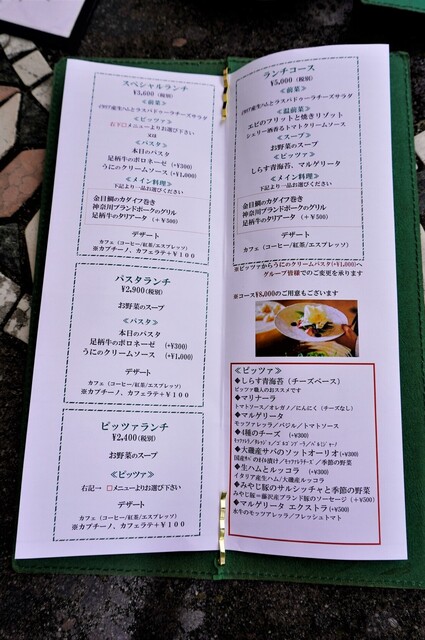 スペシャルランチ
¥3,600 (税別)
≪前菜≫
≪ピッツァ≫
右下□メニューよりお選び下さい
≪パスタ≫
本日のパスタ
足柄牛のボロネーゼ (+¥300)
うにのクリームソース (+¥1,000)
≪メイン料理≫
下記より一品お選びください
金目鯛のカダイフ巻き
神奈川ブランドポークのグリル
足柄牛のタリアータ (+¥500)
デザート
カフェ (コーヒー/紅茶/エスプレッソ)
※カプチーノ、カフェラテ+¥100
パスタランチ
¥2,900(税別)
お野菜のスープ
≪パスタ≫
本日のパスタ
足柄牛のボロネーゼ (+¥300)
うにのクリームソース (+¥1,000)
デザート
カフェ (コーヒー/紅茶/エスプレッソ)
※カプチーノ、カフェラテ+¥100
ピッツァランチ
¥2,400(税別)
お野菜のスープ
≪ピッツァ≫
右記→□メニューよりお選び下さい
デザート
カフェ (コーヒー/紅茶/エスプレッソ)
※カプチーノ、カフェラテ+¥100
ランチコース
¥5,000(税別)
≪前菜≫
≪温前菜≫
エビのフリットと焼きリゾット
シェリー酒香るトマトクリームソース
≪スープ≫
お野菜のスープ
≪ピッツァ≫
しらす青海苔、マルゲリータ
≪メイン料理≫
下記より一品お選びください
金目鯛のカダイフ巻き
神奈川ブランドポークのグリル
足柄牛のタリアータ (+¥500)
デザート
カフェ (コーヒー/紅茶/エスプレッソ)
※ピッツァからうにのクリームパスタ(+¥1,000)へ
グループ皆様でのご変更を承ります
※コース¥8,000のご用意もございます
≪ピッツァ≫
◆しらす青海苔 (チーズベース)
ピッツァ職人のおススメです
◆マリナーラ
トマトソース/オレガノ/にんにく (チーズなし)
◆マルゲリータ
モッツァレラ/バジル/トマトソース
◆4種のチーズ (+¥300)
◆大磯産サバのソットオーリオ(+¥300)
国産サバのオイル漬け/モッツァレラチーズ/季節の野菜
◆生ハムとルッコラ (+¥300)
イタリア産生ハム/大磯産ルッコラ
◆みやじ豚のサルシッチャと季節の野菜
みやじ豚=藤沢産ブランド豚のソーセージ (+¥500)
◆マルゲリータ エクストラ(+¥500)
水牛のモッツァレッラ/フレッシュトマト